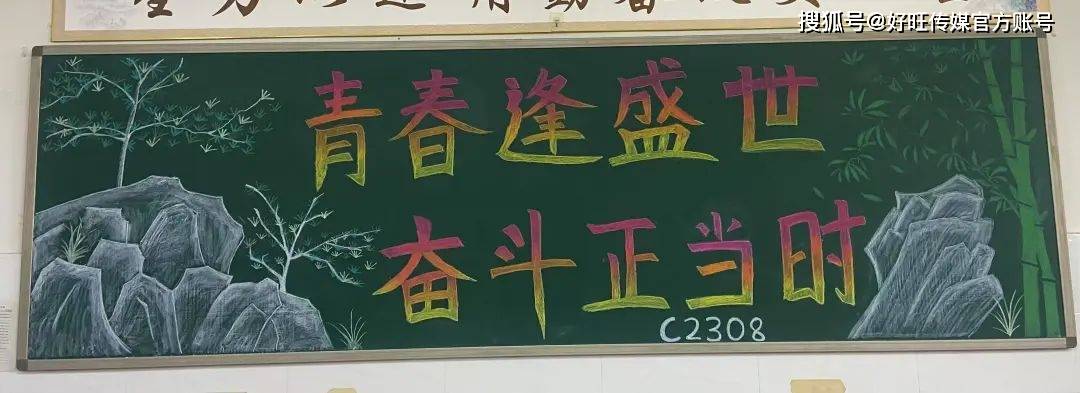 搜狐号@好旺传媒官方账号
青春逢盛世
奋斗正当时
C2308